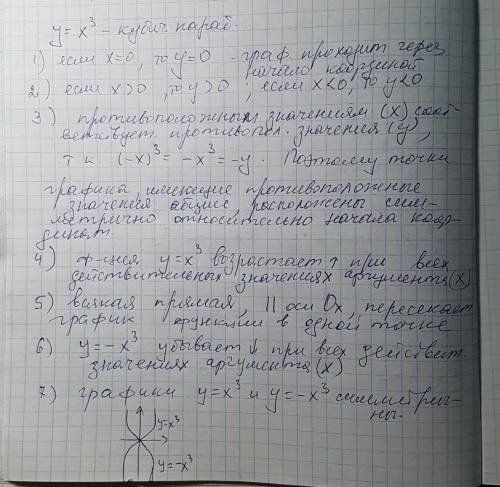 y = x³ – кубич. параб.
1) если x=0, то y=0 - граф. проходит через
начало координат
2) если x>0, то y>0 ; если x<0, то y<0
3) противоположным значениям (x) соот-
ветствует противопол. значения (y),
т.к. (-x)³ = -x³ = -y. Поэтому точки
графика, имеющие противоположные
значения абцисс расположены сим-
метрично относительно начала коор-
динат.
4) ф-ция y=x³ возрастает ↑ при всех
действительных значениях аргумента (x)
5) всякая прямая, || оси Ox, пересекает
график функции в одной точке
6) y=-x³ убывает ↓ при всех действит.
значениях аргумента (x)
7) графики y=x³ и y=-x³ симметрич-
ны.
y=x³
y=-x³